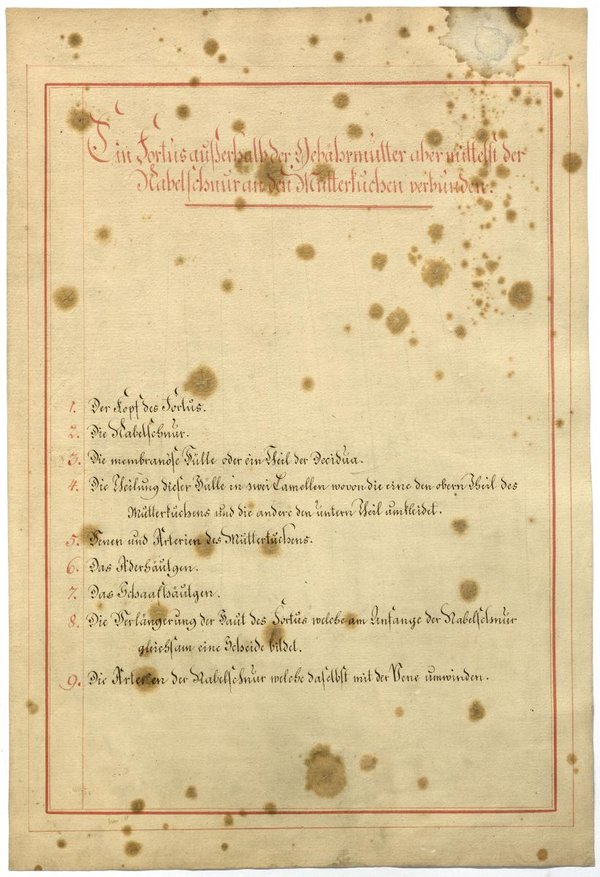 Ein Foetus außerhalb der Gebährmutter aber mittelst der
Nabelschnur an den Mutterkuchen verbunden.
1. Der Kopf des Foetus.
2. Die Nabelschnur.
3. Die membranöse Hülle oder ein Theil der Decidua.
4. Die Theilung dieser Hülle in zwei Lamellen wovon die eine den obern Theil des
Mutterkuchens und die andere den untern Theil umkleidet.
5. Venen und Arterien des Mutterkuchens.
6. Das Aderhäutgen.
7. Das Schaafhäutgen.
8. Die Verlängerung der Haut des Foetus welche am Anfange der Nabelschnur
gleichsam eine Scheide bildet.
9. Die Arterien der Nabelschnur welche daselbst mit der Vene umwinden.